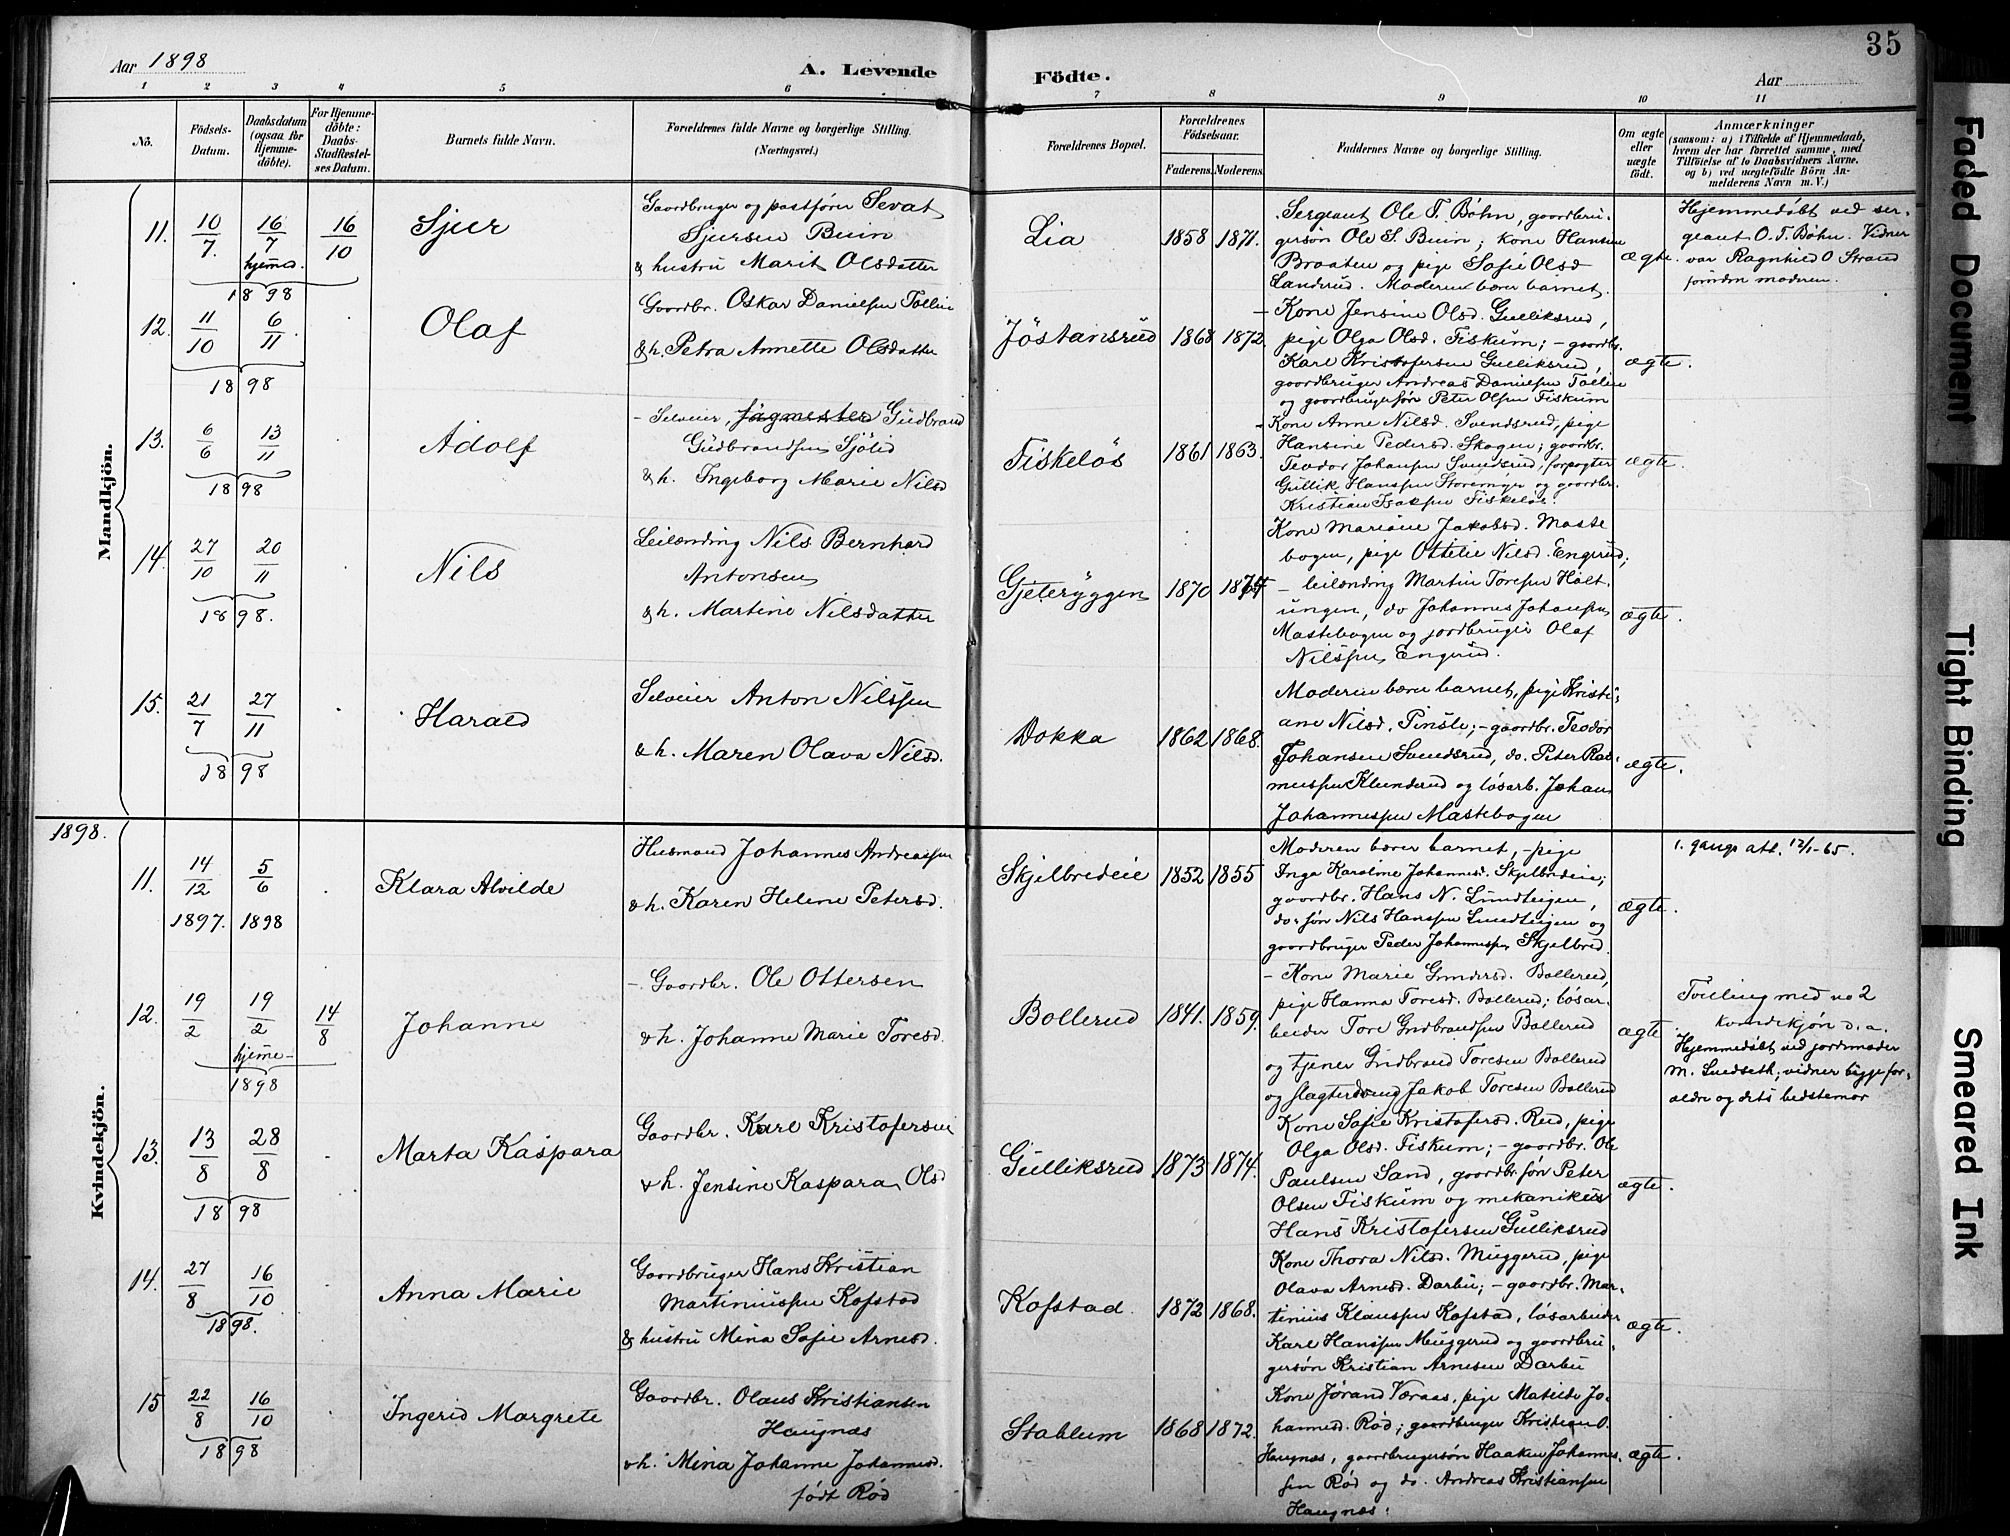 Aar 1898
A. Levende
Födte.
Aar
35
1 2 3 4 5 6 7 8 9 10 11
No.
Födsels-
Datum.
Daabsdatum
(ogsaa for
Hjemme-
döbte).
For Hjemme-
döbte:
Daabs-
Stadfæstel-
ses Datum.
Barnets fulde Navn.
Forældrenes fulde Navne og borgerlige Stilling.
(Næringsvei.)
Forældrenes Bopæl.
Forældrenes
Födselsaar.
Faderens. Moderens.
Faddernes Navne og borgerlige Stilling.
Om ægte
eller
uægte
födt.
Anmærkninger
(saasom: a) i Tilfælde af Hjemmedaab,
hvem der har forrettet samme, med
Tilföielse af to Daabsvidners Navne,
og b) ved uægtefödte Börn An-
melderens Navn m. V.)
Mandkjön.
11. 10/7. 16/7 hjemed. 16/10
1898
Sjur
Gaardbruger og postfører Sevat
Sjursen Buin
& hustru Marit Olsdatter
Lia
1858 1871.
Sergeant Ole T. Bøhn, gaardbru-
gersøn Ole S. Buin; kone Hansen
Braaten og pige Sofie Olsd
Landerud. Moderen bærer barnet.
ægte.
Hjemmedøbt ved ser-
geant O. T. Bøhn. Vidner
var Ragnhild O Strand
foruden moderen.
12. 11/10 6/11
1898
Olaf
Gaardbr. Oskar Danielsen Tollin
& h. Petra Annette Olsdatter
Jöstansrud
1868 1872.
– Kone Jensine Olsd. Gulliksrud,
pige Olga Olsd. Fiskum; – gaardbr.
Karl Kristofersen Gulliksrud,
gaardbruger Andreas Danielsen Tollin
og gaardbrugersøn Peter Olsen Fiskum
ægte.
13. 6/6 13/11
1898
Adolf
– Selveier, Jægmester Gudbrand
Gudbrandsen Sjölid
& h. Ingeborg Marie Nilsd
Fiskeløs
1861 1863.
– Kone Anne Nilsd. Svendsrud, pige
Hansine Pedersd. Skogen; gaardbr.
Teodor Johansen Svendsrud, forpagter
Gullik Hanssen Storemyr og gaardbr.
Kristian Isaksen Fiskeløs.
ægte.
14. 27/10 20/11
1898.
Nils
Leilænding Nils Bernhard
Antonsen
& h. Martine Nilsdatter
Gjeteryggen
1870
Kone Mariane Jakobsd. Maste
bogen, pige Ottilie Nilsd. Engerud;
– leilænding Martin Toresen Holt-
ungen, do Johannes Johansen
Mastebogen og jordbruger Olaf
Nilssen Engerud.
ægte.
15. 21/7 27/11
1898
Harald
Selveier Anton Nilssen
& h. Maren Olava Nilsd.
Dokka
1862 1868.
Moderen bærer barnet, pige Kristi-
ane Nilsd. Pinsle; – gaardbr. Teodor
Johansen Svendsrud, do. Peter Ras-
mussen Klunderud og løsarb. Johan
Johannessen Mastebogen
ægte.
1898.
Kvindekjön.
11. 14/12 1897. 5/6 1898
Klara Alvilde
Husmand Johannes Andreassen
& h. Karen Helene Petersd.
Skjelbredeie
1852 1855
Moderen bærer barnet, – pige
Inga Karoline Johannesd. Skjelbredeie;
gaardbr. Hans N. Lundteigen,
do. søn Nils Hanssen Lundteigen og
gaardbruger Peder Johannessen Skjelbred.
ægte.
1. gangs att. 12/1-65.
12. 19/2 19/2 hjeme- 14/8
1898
Johanne
– Gaardbr. Ole Ottersen
& h. Johanne Marie Toresd.
Bollerud
1841. 1859.
– Kone Marie Gundersd. Bollerud,
pige Hanna Toresd. Bollerud; løsar-
beider Tore Gudbrandsen Bollerud
og tjener Gudbrand Toresen Bollerud
og slagterdreng Jakob Toresen Bollerud
ægte
Tvilling med no 2
kvindekjøn d. a.
Hjemmedøbt ved jordmoder
M. Lundseth; vidner begge for-
ældre og dets bedstemor
13. 13/8 28/8
1898
Marta Kaspara
Gaardbr. Karl Kristofersen
& h. Jensine Kaspara Olsd
Gulliksrud
1873 1874.
Kone Sofie Kristofersd. Rud, pige
Olga Olsd. Fiskum; – gaardbr. Ole
Paulsen Sand, gaardbr. søn Peter
Olsen Fiskum og mekanikus
Hans Kristofersen Gulliksrud
ægte.
14. 27/8 16/10
1898.
Anna Marie
Gaardbruger Hans Kristian
Martiniussen Kofstad
& hustru Mina Sofie Arnesd.
Kofstad.
1872 1868.
Kone Thora Nilsd. Muggerud, pige
Olava Arnesd. Darbu; – gaardbr. Mar-
tinius Klaussen Kofstad, løsarbeider
Karl Hanssen Muggerud og gaardbru-
gersøn Kristian Arnesen Darbu
ægte.
15 22/8 16/10
1898
Ingerid Margrete
Gaardbr. Olaus Kristiansen
Haugnæs
& h. Mina Johanne Johannesd.
født Rød
Stablum
1868 1872.
Kone Jørand Varaas, pige Matilde Jo-
hannesd. Rød; gaardbruger Kristian O.
Haugnæs, gaardbrugersøn Haaken Johannes-
sen Rød og do. Andreas Kristiansen
Haugnæs.
ægte.
Faded Document
Tight Binding
Smeared Ink